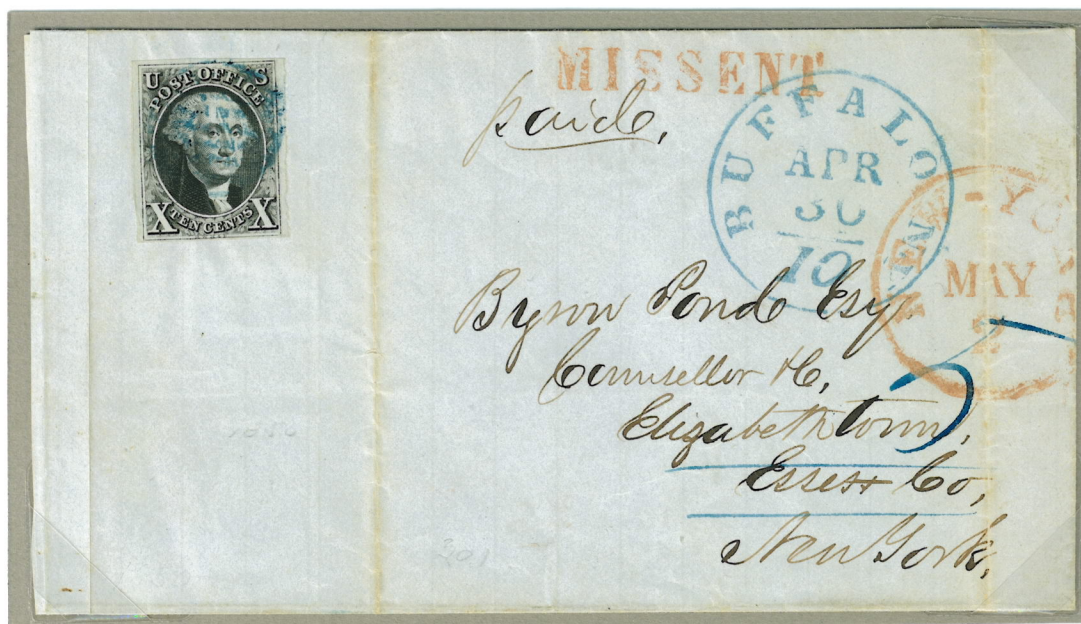 U S
POST OFFICE
X TEN CENTS X
MISSENT
paide,
BUFFALO
APR
30
10
MAY
2
Byron Ponde Esqr
Counsellor &c,
Elizabethtown,
Essex Co,
New York,
5
201